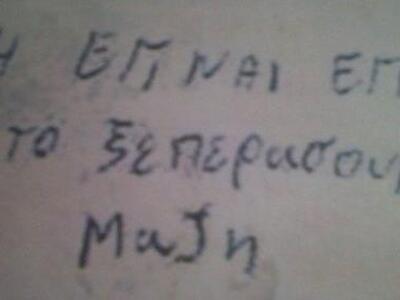 Η ΕΓΙΝΑΙ ΕΠ
το ξεπερασου
Μαζη